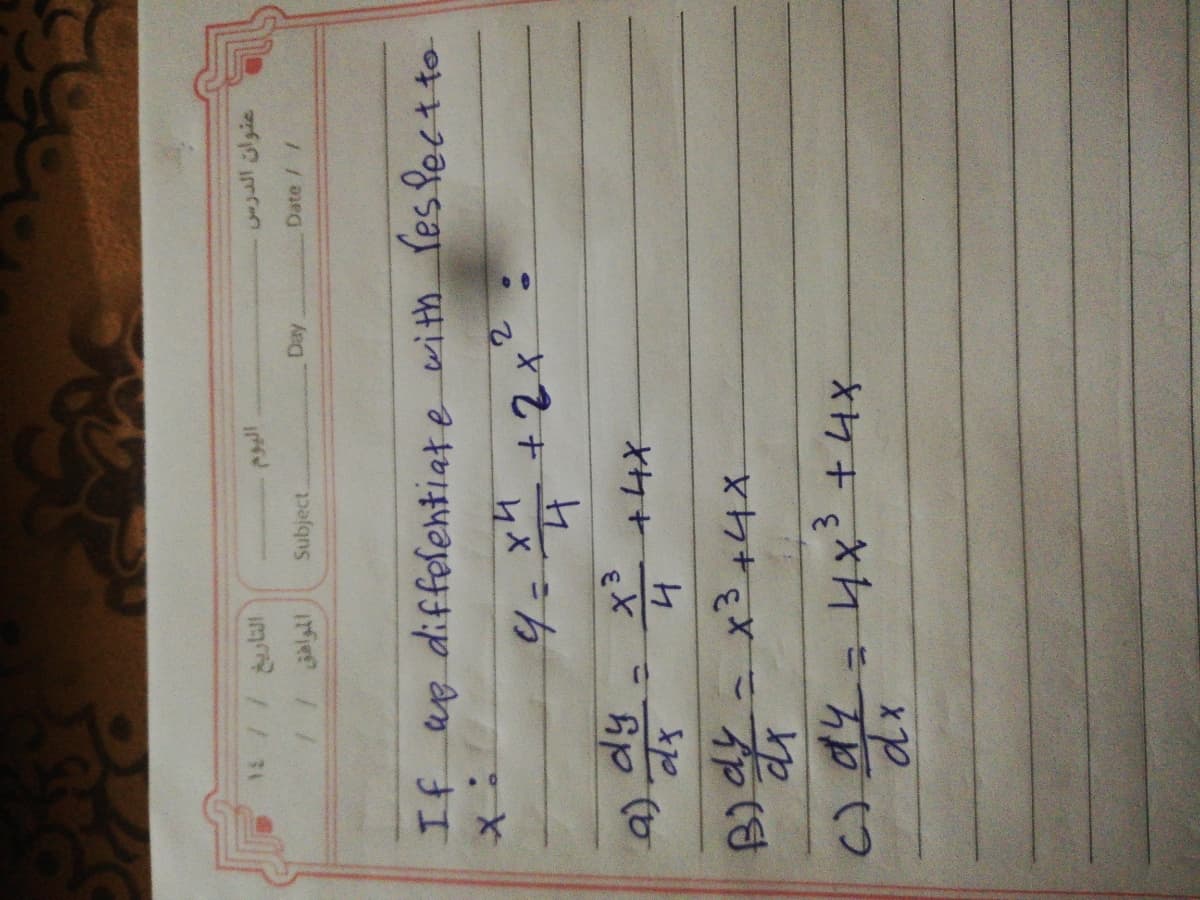 عنوان الدرس
اليوم
التاريخ / / ١٤
Date / /
Day
Subject
الموافق / /
If we differentiate with respect to
x:
y = x^4/4 + 2x^2 :
a) dy/dx = x^3/4 + 4x
B) dy/dx = x^3 + 4x
C) dy/dx = 4x^3 + 4x